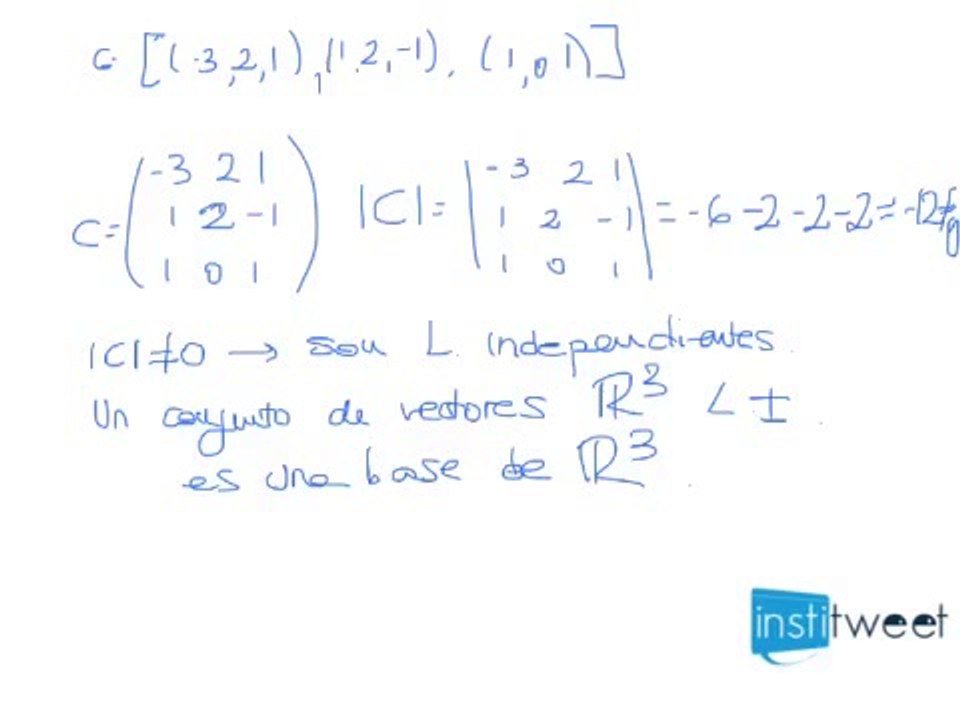 C [(-3,2,1), (1,2,-1), (1,0,1)]
C= (-3 2 1 |C|= |-3 2 1
1 2 -1 1 2 -1 = -6-2-2-2=-12≠
1 0 1) 1 0 1|
|C|≠0 → son L. independientes.
Un conjunto de vectores ℝ³ L I.
es una base de ℝ³.
institweet